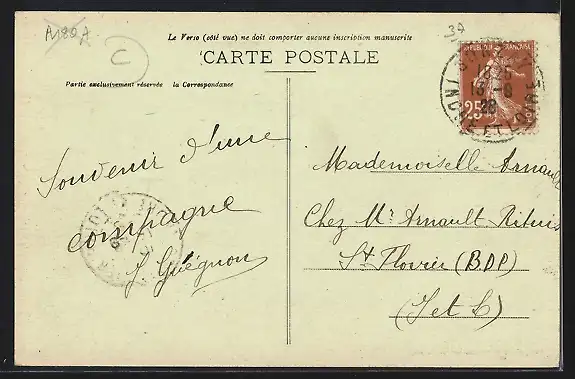 A180A
C
3A
Le Verso (côté vue) ne doit comporter aucune inscription manuscrite
CARTE POSTALE
Partie exclusivement réservée à la Correspondance
REPUBLIQUE FRANÇAISE
25c
POSTES
18 25
18 -8
28
INDRE ET LOIRE
Souvenir d'une
compagne
J. Guégnon
Mademoiselle Arnault
Chez Mr Arnault
St Flovier (B.D.P)
(I et L)